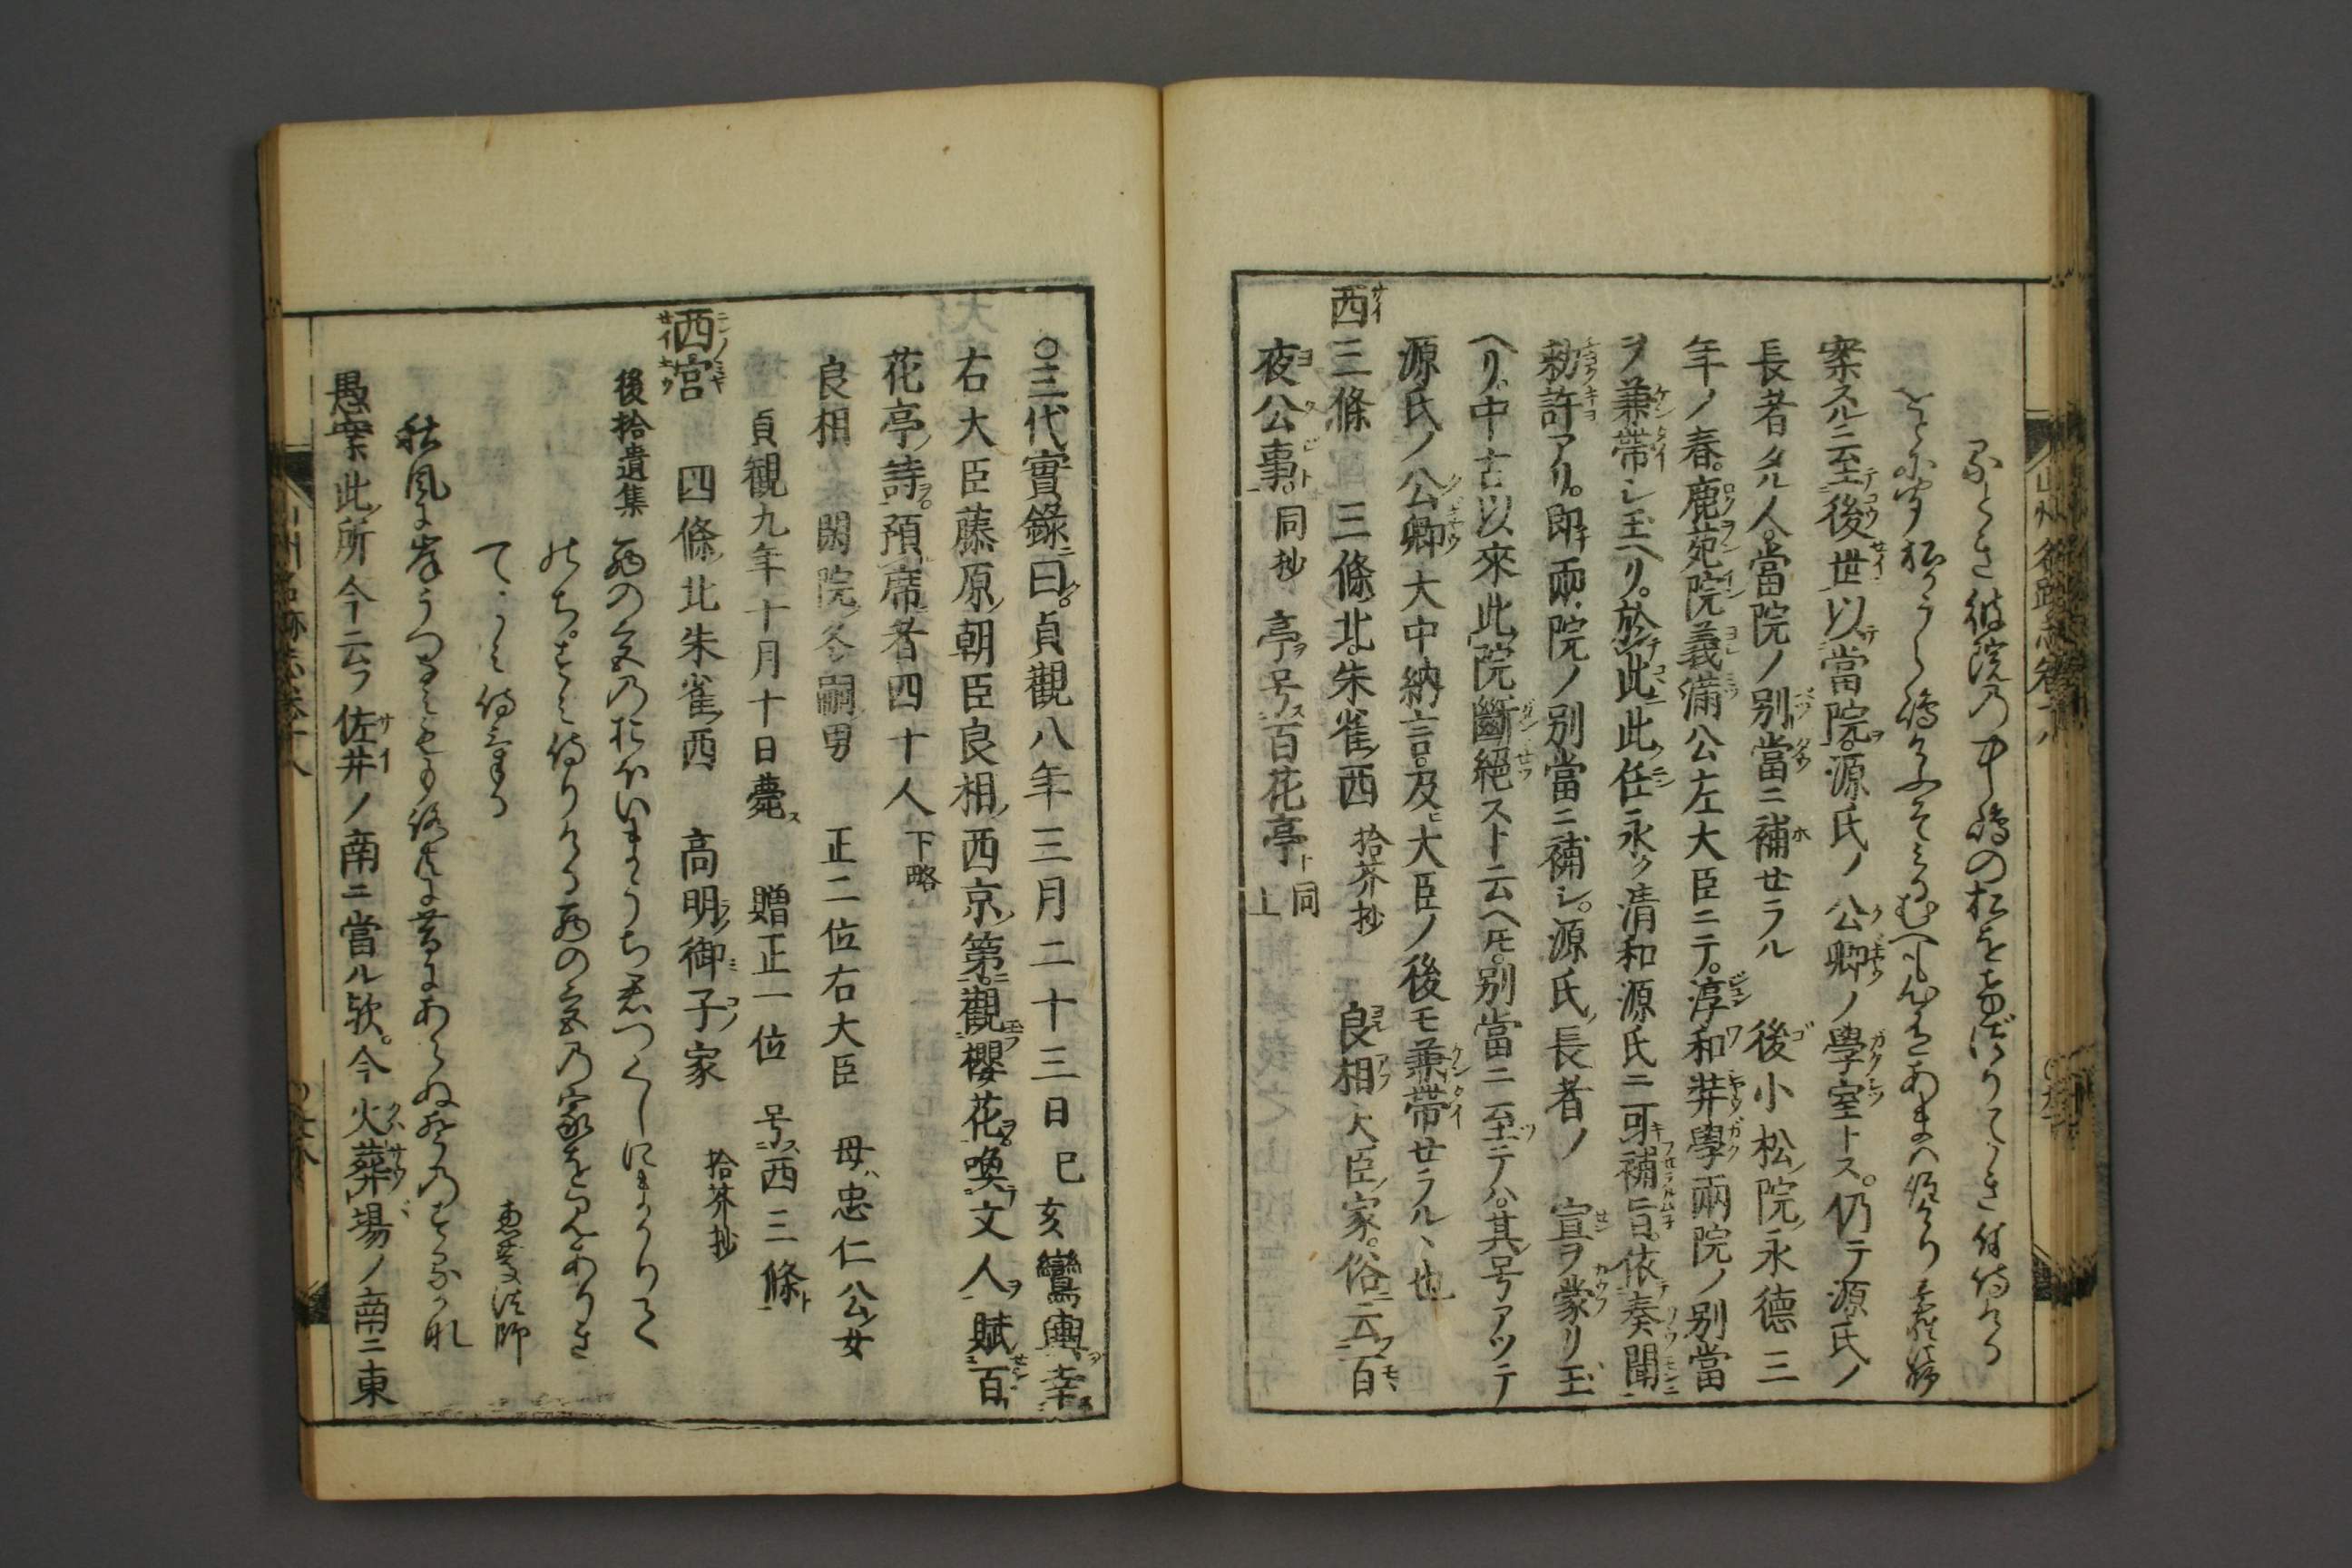 るとき彼院の中嶋の松をけづりてかき付侍ける
をとにきく松がうら嶋けふぞみるむべも心あるあまはすみけり 素性法師
案スルニ至後世以當院源氏ノ公卿ノ學室トス仍テ源氏ノ
長者タル人當院ノ別當ニ補セラル 後小松院永德三
年ノ春鹿苑院義滿公左大臣ニテ淳和弉學兩院ノ別當
ヲ兼帶シ玉ヘリ於此此任永ク清和源氏ニ可補旨依奏聞
勅許アリ即兩院ノ別當ニ補シ源氏長者ノ 宣ヲ蒙リ玉
ヘリ中古以來此院斷絕スト云ヘ𪜈別當ニ至テハ其号アツテ
源氏ノ公卿大中納言及大臣ノ後モ兼帶セラルヽ也
西三條 三條北朱雀西 拾芥抄 良相大臣家俗云百
夜公事同抄 亭号百花亭同上
○三代實錄曰貞觀八年三月二十三日己亥鸞輿幸
右大臣藤原朝臣良相西京第觀櫻花喚文人賦百
花亭詩預席者四十人 下略
良相 閑院冬嗣男 正二位右大臣 母忠仁公女
貞觀九年十月十日薨 贈正一位 号西三條
西宮 四條北朱雀西 高明御子家 拾芥抄
後拾遺集 西の宮のおほいまうち君つくしにまかりて
のちすみ侍りける西の宮の家を見ありき
てよみ侍ける 惠慶法師
秋風
愚案此所今云フ佐井ノ南ニ當ル欤今火葬場ノ南ニ東